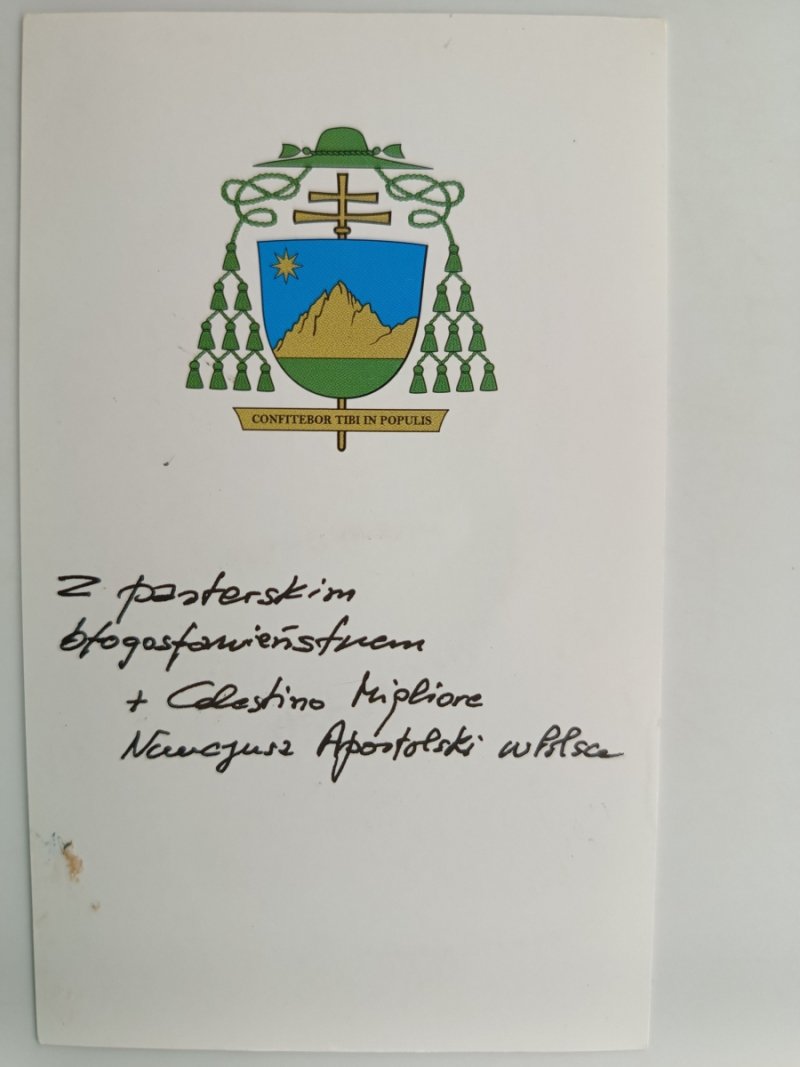 CONFITEBOR TIBI IN POPULIS
Z pasterskim
błogosławieństwem
+ Celestino Migliore
Nuncjusz Apostolski w Polsce